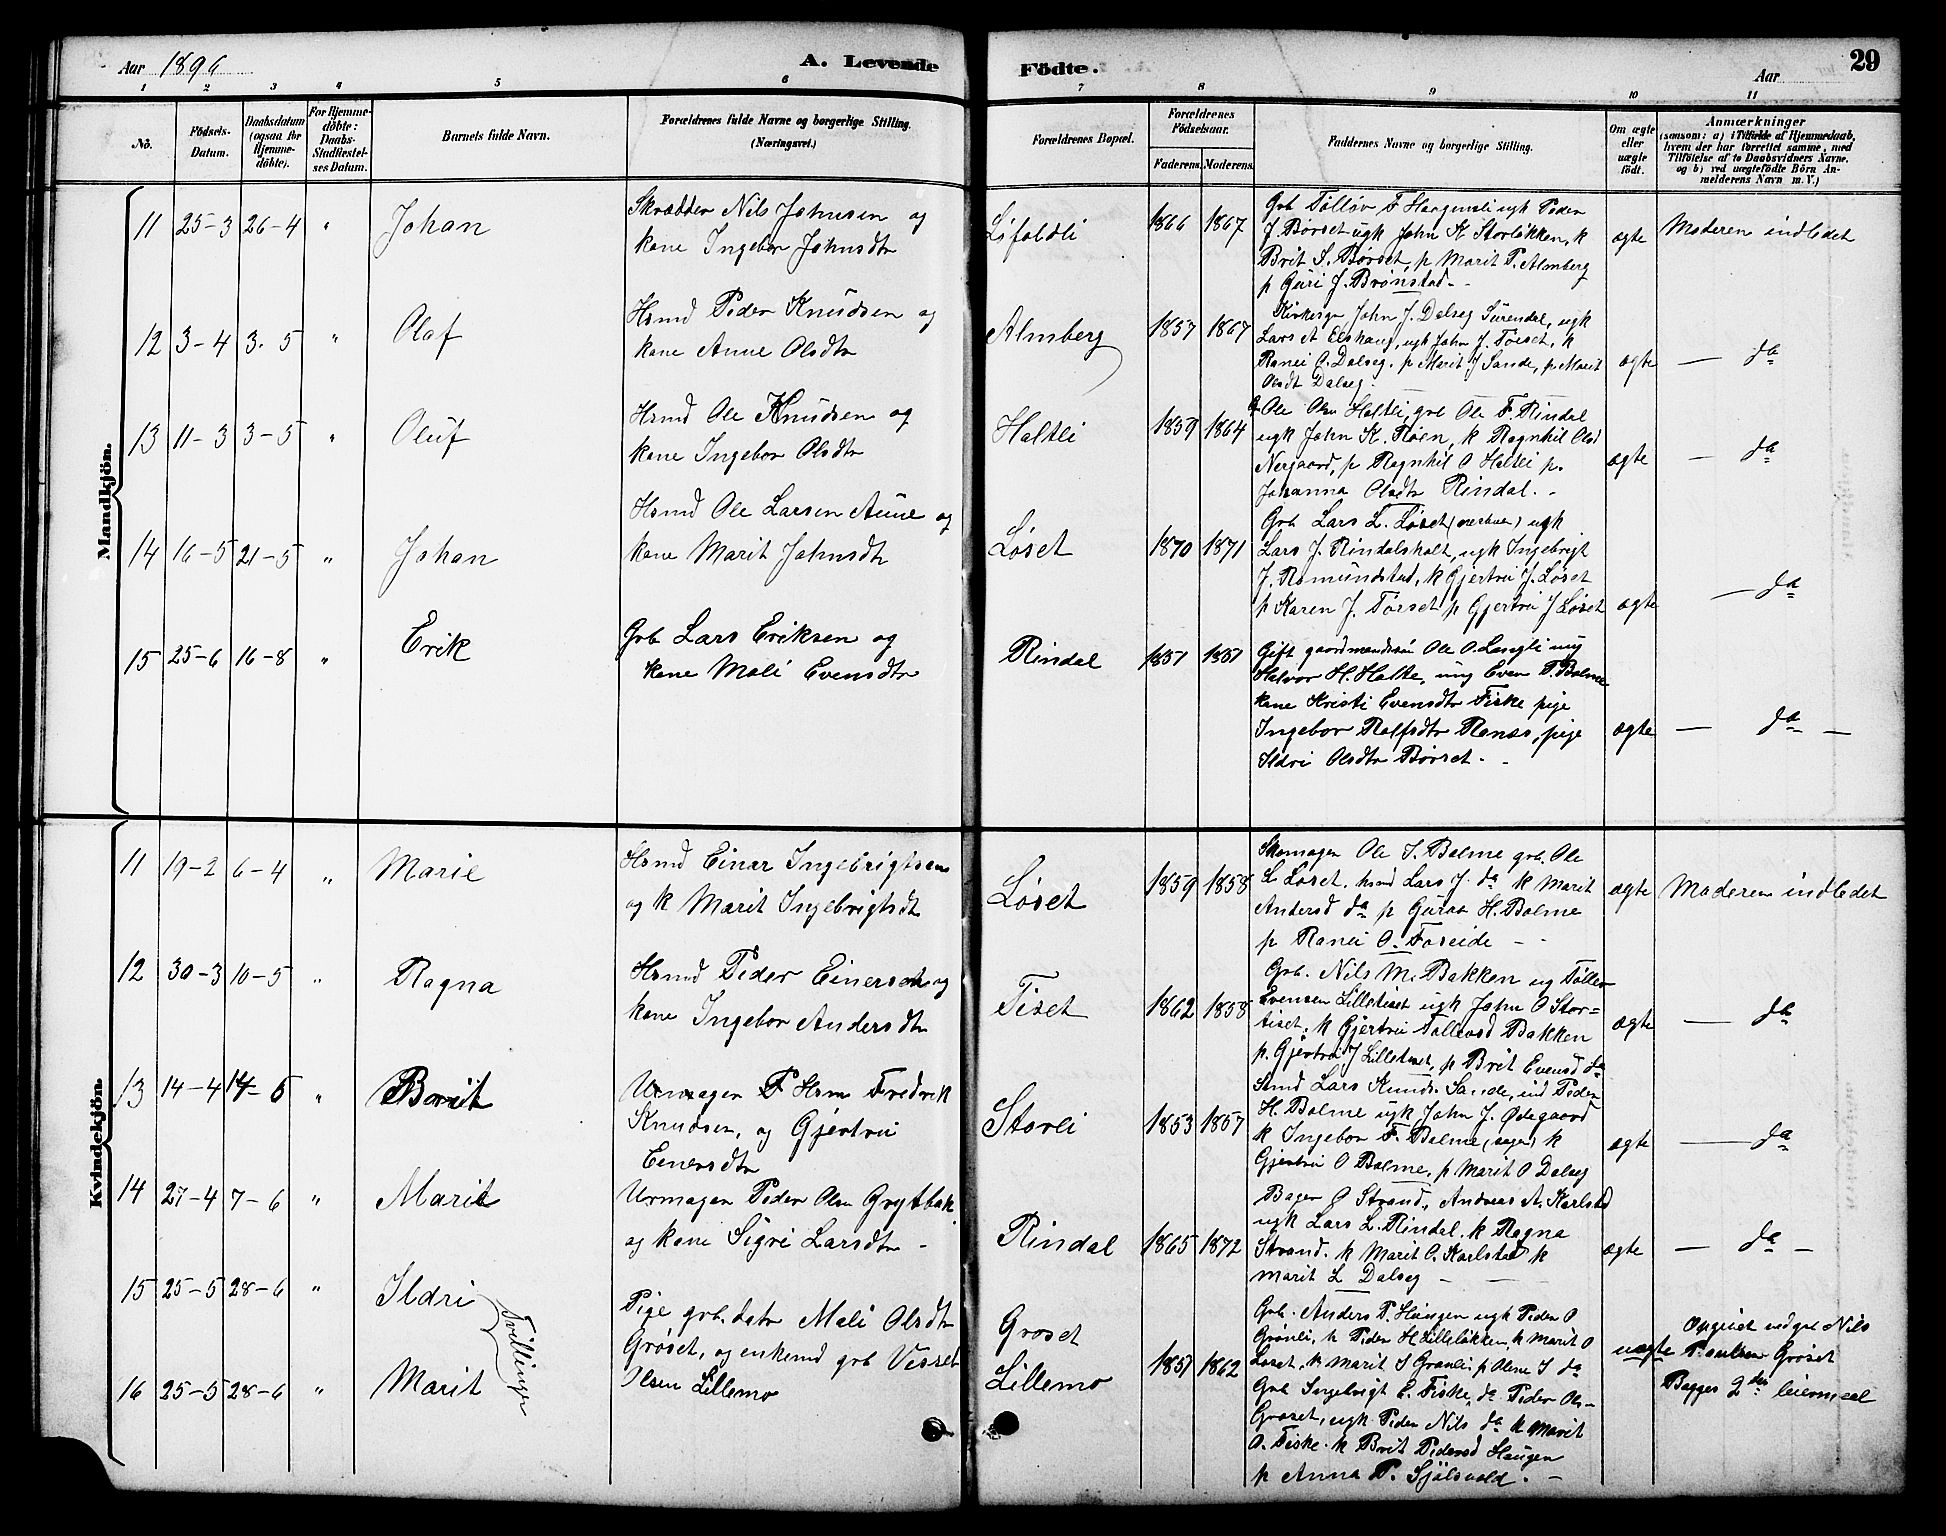 Aar 1896
A. Levende Födte.
Aar
29
1 2 3 4 5 6 7 8 9 10 11
No.
Födsels-Datum.
Daabsdatum (ogsaa for Hjemmedöbte).
For Hjemmedöbte: Daabs-Stadfæstelses Datum.
Barnets fulde Navn.
Forældrenes fulde Navne og borgerlige Stilling. (Næringsvei.)
Forældrenes Bopæl.
Forældrenes Födselsaar.
Faderens. Moderens.
Faddernes Navne og borgerlige Stilling.
Om ægte eller uægte födt.
Anmærkninger
(saasom: a) i Tilfælde af Hjemmedaab, hvem der har forrettet samme, med Tilföielse af to Daabsvidners Navne, og b) ved uægtefödte Börn Anmelderens Navn m. V.)
Mandkjön.
11 25-3 26-4 " Johan
Skrædder Nils Johnsen og
kone Ingebor Johnsdtr
Lifoldli 1866 1867
Grb Tølløv F Haugenli ugk Peder
J Børset ugk John K Storløkken, k
Brit S. Børset, p Marit P. Almberg
p Guri J. Brønstad
ægte Moderen indledet
12 3-4 3-5 " Olaf
Hsmd Peder Knudsen og
kone Anne Olsdtr
Almberg 1857 1867
Kirkesgr John J. Dalseg Surendal, ugk
Lars A Elshaug, ugk John J. Tørset, k
Ranei O. Dalseg. p Marit J Sande, p Marit
Olsdt Dalseg.
ægte — da
13 11-3 3-5 " Oluf
Hsmd Ole Knudsen og
kone Ingebor Olsdtr
Haltli 1859 1864
Ole Olsn Haltli, grb Ole F. Rindal
ugk John K. Røen, k Ragnhil Olsd
Nergaard, p Ragnhil O Haltli p.
Johanna Olsdtr Rindal.
ægte — da
14 16-5 21-5 " Johan
Hsmd Ole Larsen Aune og
kone Marit Johnsdtr
Løset 1870 1871
Grb Lars L. Løset ugk
Lars J. Rindalsholt, ugk Ingebrigt
J. Romundstad, k Gjertru J. Løset
p Karen J. Tørset p Gjertru J Løset
ægte — da
15 25-6 16-8 " Erik
Grb Lars Eriksen og
kone Mali Evensdtr
Rindal 1851 1851
Gift gaardmandssøn Ole O. Langli ung
Halvor H. Halte, ung Even T. Bolme
kone Kristi Evensdtr Fiske pige
Ingebor Rolfsdtr Ranæs, pige
Ildri Olsdtr Børset.
ægte — da —
Kvindekjön.
11 19-2 6-4 " Marie
Hsmd Einar Ingebrigtsen
og k Marit Ingebrigtsdt
Løset 1859 1858
Skomager Ole I. Bolme grb. Ole
L Løset. hsmd Lars J. da k Marit
Andersd da p Guroa H. Bolme
p Ranei O. Foseide
ægte Moderen indledet
12 30-3 10-5 " Ragna
Hsmd Peder Einersen og
kone Ingebor Andersdtr
Tiset 1862 1858
Grb. Nils M. Bakken ug Tøllev
Evensen Lilletiset ugk John O Stor=
tiset. k Gjertru Tollevsd Bakken
p. Gjertru J Lilletiset, p Brit Evensd da
ægte — da
13 14-4 14-5 " Borit
Urmager F Hsm Fredrik
Knudsen, og Gjertrui
Einersdtr
Storli 1853 1857
Smd Lars Knuds. Sande, ind Peder
H. Bolme ugk John J. Ødegaard
k Ingebor F. Bolme k
Gjertru O Bolme, p Marit O Dalseg
ægte — da
14 27-4 7-6 " Marit
Urmager Peder Olsn Grytbak
og kone Sigri Larsdtr
Rindal 1865 1872
Bager O Strand, Andreas A. Karlstad
ugk Lars L. Rindal. k Ragna
Strand. k Marit O. Karlstad k
Marit L Dalseg
ægte — da —
15 25-5 28-6 " Ildri
Tvillinger
16 25-5 28-6 " Marit
Pige grb.datr Mali Olsdtr
Grøset, og enkemd grb Vessel
Olsen Lillemo
Grøset
Lillemo 1857 1862
Grb. Anders P. Haugen ugk Peder O
Grønli, k Peder H Lilleløkken, k Marit O
Løset. k Marit I Grønli, p Olme I da
Grb Ingebrigt E. Fiske, da Peder Ols-
Grøset, ugk Peder Nils da k Marit
O. Fiske. k Brit Pedersd Haugen
p Anna P. Sjølsvold.
uægte
Opgivet ved grb Nils
Paulsen Grøset
Begges 2det leiermaal